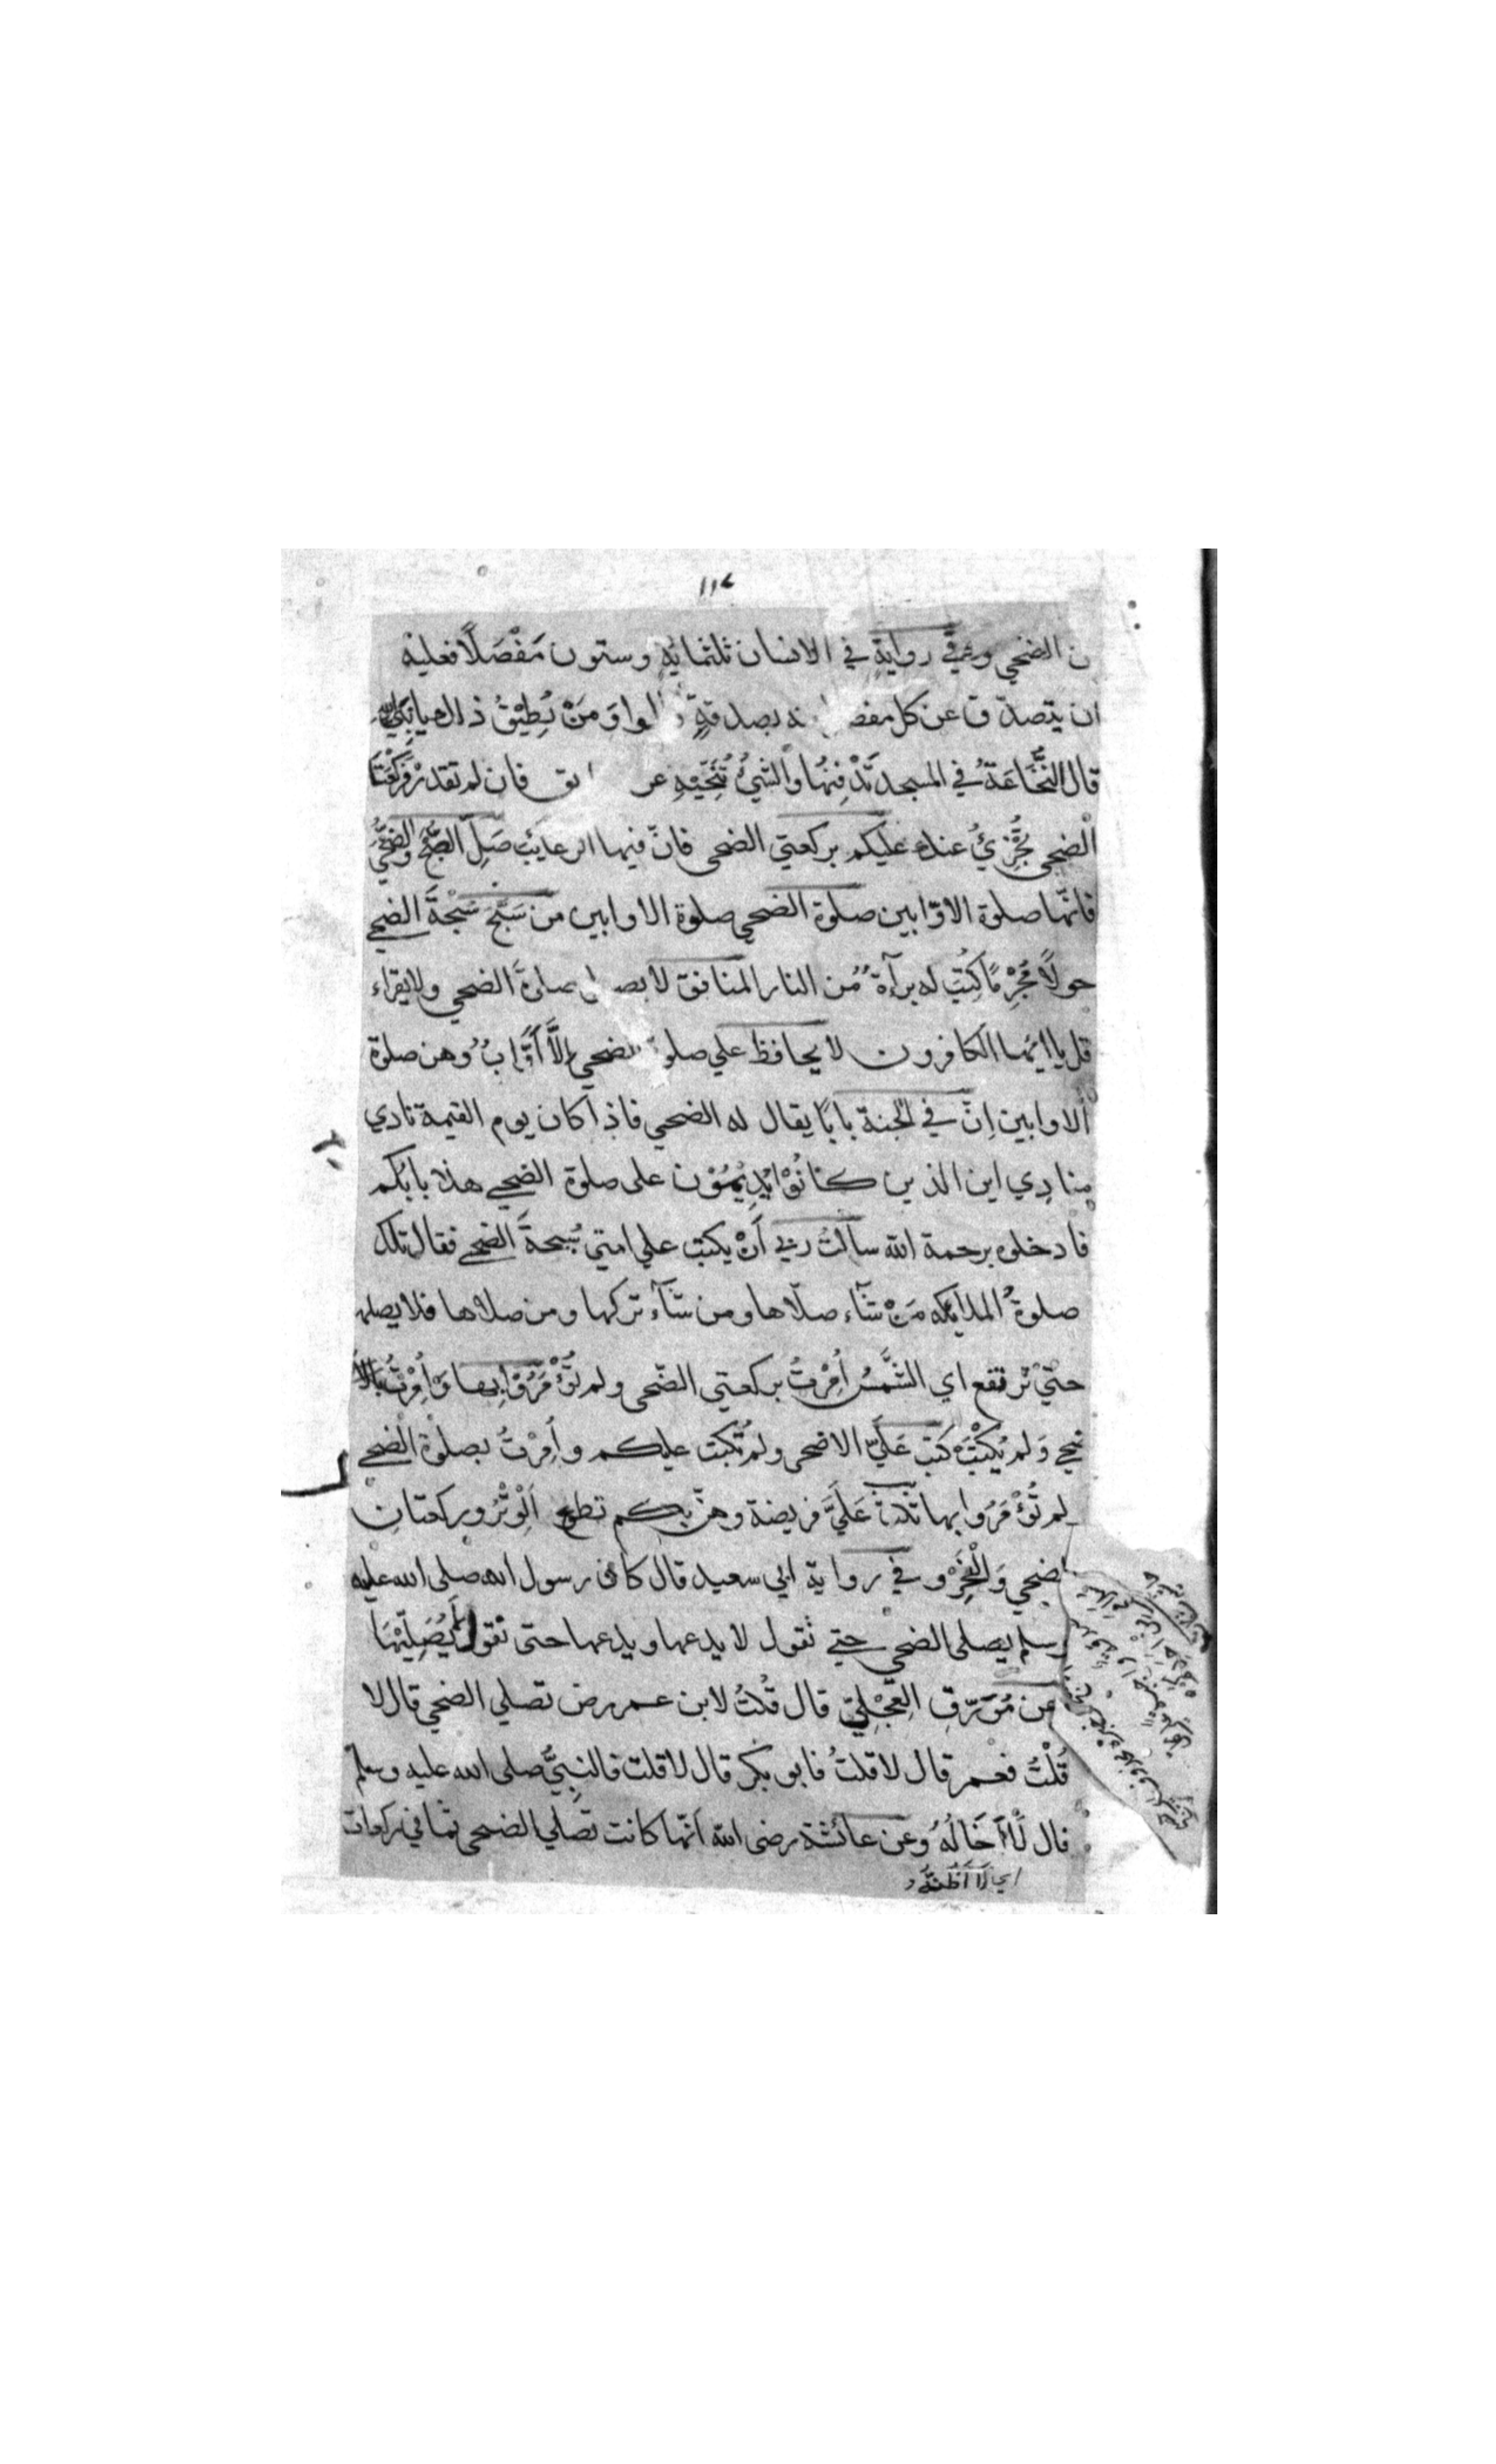 ١١٤
ن الضحى وفي رواية في الانسان ثلثماية وستون مَفْصَلًا فعليه
ان يتصدّق عن كل مفصل بصدقةٍ قالوا وَمَنْ يُطِيْقُ ذلك يا نبي الله
قال النُّخَاعَةُ في المسجد تَدْفِنُهَا والشَّيْءُ تُنَحِّيْهِ عن فان لم تقدر فَرَكْعَتَا
الضحى تُجْزِئُ عنك عليكم بركعتي الضحى فانّ فيها الرغايب صَلِّ الصُّبْحَ والضُّحَى
فانّها صلوة الاوّابين صلوة الضحى صلوة الاوابين من سَبَّحَ سُبْحَةَ الضحى
حولًا مُجْرِمًا كُتِبَ له برآءةٌ من النار المنافق لا يصلى صلوةَ الضحى ولا يقراء
قل يا ايّها الكافرون لا يحافظ على صلوة الضحى اِلَّا اَوَّابٌ وهن صلوة
الاوابين اِنّ في الجنة بابًا يقال له الضحى فاذا كان يوم القيمة نادي
منادِي اين الذين كانُوْا يُدِيْمُوْن على صلوة الضحى هذا بابُكم
فادخلوه برحمة الله سالتُ ربي اَنْ يكتب على امتي سُبحةَ الضحى فقال تلك
صلوةُ الملايكه مَنْ شآء صلّاها ومن شآء تركها ومن صلاها فلا يصلها
حتّى ترتفع اي الشَّمْسُ اُمِرْتُ بركعتي الضّحى ولم تُؤْمَرُوْا بها وَاُمِرْتُ بالا
ضحى وَلم يُكْتَبْ كُتِبَ عَلَيَّ الاضحى ولم تُكتب عليكم واُمِرْتُ بصلوة الضحى
لم تُؤْمَرُوا بها ثلاث عَلَيَّ فريضة وهنّ لكم تطوع اَلْوِتْرُ وركعتانِ
الضحى وَالْفَجْر وفي رواية ابي سعيد قال كان رسول الله صلى الله عليه
وسلم يصلى الضحى حتى نقول لا يدعها ويدعها حتى نقول لَمْ يُصَلِّيْهَا
عن مُوَرِّقِ العِجْلِيّ قال قُلْتُ لابن عمر رض تصلي الضحى قال لا
قُلْتُ فعمر قال لا قلتُ فابو بكر قال لا قلت فالنبيُّ صلى الله عليه وسلم
قال لَا اَخَالُهُ وعن عائشة رضى الله اَنّها كانت تصلي الضحى ثماني ركعات
اي لَا اَظُنُّهُ